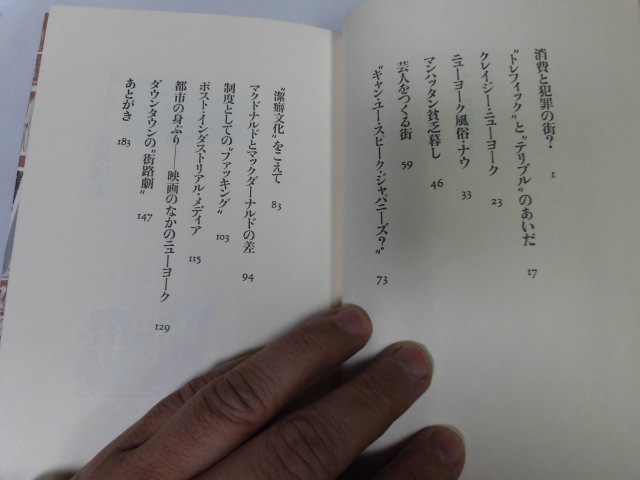 消費と犯罪の街? 1
“トレフィック”と“テリブル”のあいだ 17
クレイジー・ニューヨーク 23
ニューヨーク風俗・ナウ 33
マンハッタン貧乏暮し 46
芸人をつくる街 59
“キャン・ユー・スピーク・ジャパニーズ?” 73
“潔癖文化”をこえて 83
マクドナルドとマックダーナルドの差 94
制度としての“ファッキング” 103
ポスト・インダストリアル・メディア 115
都市の身ぶり——映画のなかのニューヨーク 129
ダウンタウンの“街路劇” 147
あとがき 183